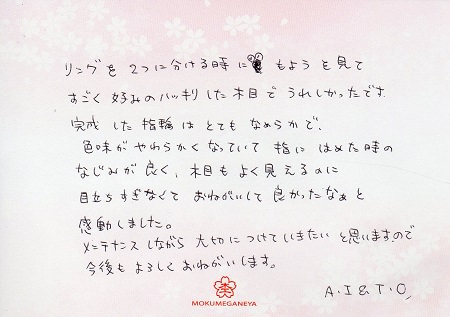 リングを2つに分ける時に もようを見て
すごく好みのハッキリした木目でうれしかったです.
完成した指輪はとてもなめらかで、
色味がやわらかくなっていて指にはめた時の
なじみが良く、木目もよく見えるのに
目立ちすぎなくておねがいして良かったなぁと
感動しました。
メンテナンスしながら大切につけていきたいと思いますので
今後もよろしくおねがいします。
A.I&T.O
MOKUMEGANEYA